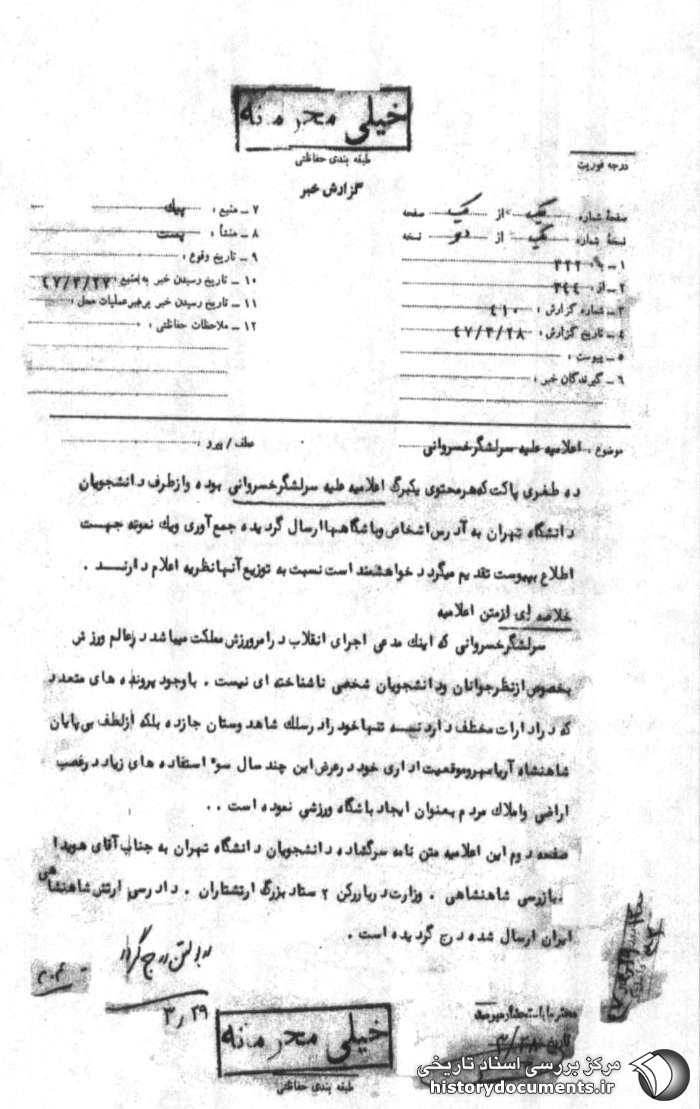 خیلی محرمانه
طبقه بندی حفاظتی
درجه فوریت
گزارش خبر
صفحهٔ شماره یک از یک صفحه
نسخهٔ شماره یک از دو نسخه
۱ – به ۳۲۲
۲ – از، ۳۴۴
۳ – شماره گزارش ، ۴۱۰
۴ – تاریخ گزارش ، ۴۷/۳/۲۸
۵ – پیوست ،
۶ – گیرندگان خبر ،
۷ – منبع ، پیک
۸ – منشأ ، پست
۹ – تاریخ وقوع ،
۱۰ – تاریخ رسیدن خبر به منبع ، ۴۷/۳/۲۷
۱۱ – تاریخ رسیدن خبر برهبر عملیات محل ،
۱۲ – ملاحظات حفاظتی ،
موضوع ، اعلامیه علیه سرلشگر خسروانی
عطف / پیرو ،
ده طغری پاکت که هر محتوی یکبرگ اعلامیه علیه سرلشگر خسروانی بوده و از طرف دانشجویان
دانشگاه تهران به آدرس اشخاص و باشگاهها ارسال گردیده جمع آوری و یک نمونه جهت
اطلاع بپیوست تقدیم میگردد خواهشمند است نسبت به توزیع آنها نظریه اعلام دارند .
خلاصه ای از متن اعلامیه
سرلشگر خسروانی که اینک مدعی اجرای انقلاب در امر ورزش مملکت میباشد در عالم ورزش
بخصوص از نظر جوانان و دانشجویان شخصی ناشناخته ای نیست . با وجود پرونده های متعدد
که در ادارات مختلف دارد نه تنها خود را در سلک شاهدوستان جا زده بلکه از لطف بی پایان
شاهنشاه آریامهر و موقعیت اداری خود در عرض این چند سال سوء استفاده های زیاد در غصب
اراضی و املاک مردم بعنوان ایجاد باشگاه ورزشی نموده است . .
صفحه دوم این اعلامیه متن نامه سرگشاده دانشجویان دانشگاه تهران به جناب آقای هویدا
، بازرسی شاهنشاهی . وزارت دربار رکن ۲ ستاد بزرگ ارتشتاران . دادرسی ارتش شاهنشاهی
ایران ارسال شده درج گردیده است .
در بولتن درج گردد
۳/۲۹
م.م
محترما باستحضار میرسد
تاریخ
خیلی محرمانه
طبقه بندی حفاظتی
مرکز بررسی اسناد تاریخی
historydocuments.ir